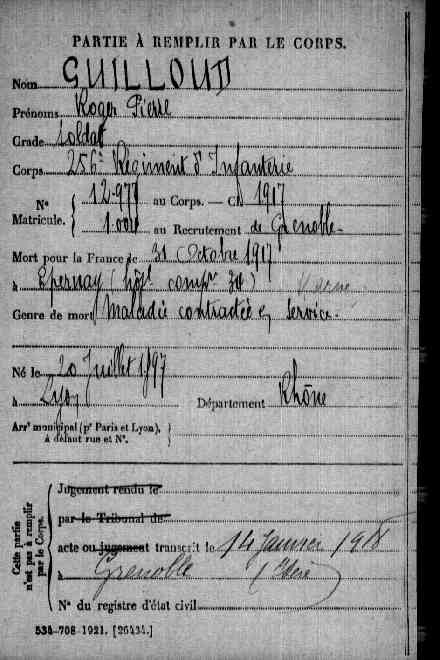 PARTIE À REMPLIR PAR LE CORPS.
Nom GUILLOUD
Prénoms Roger Pierre
Grade Soldat
Corps 256e Régiment d'Infanterie
N° Matricule. { 12.977 au Corps. — Cl. 1917
1.001 au Recrutement de Grenoble
Mort pour la France le 31 Octobre 1917
à Epernay (hôpl compre 34) Marne
Genre de mort Maladie contractée en service.
Né le 20 Juillet 1897
à Lyon Département Rhône
Arrt municipal (pr Paris et Lyon),
à défaut rue et N°.
Cette partie n'est pas à remplir par le Corps.
Jugement rendu le
par le Tribunal de
acte ou jugement transcrit le 14 Janvier 1918
à Grenoble (Isère)
N° du registre d'état civil
534-708-1921. [26434.]